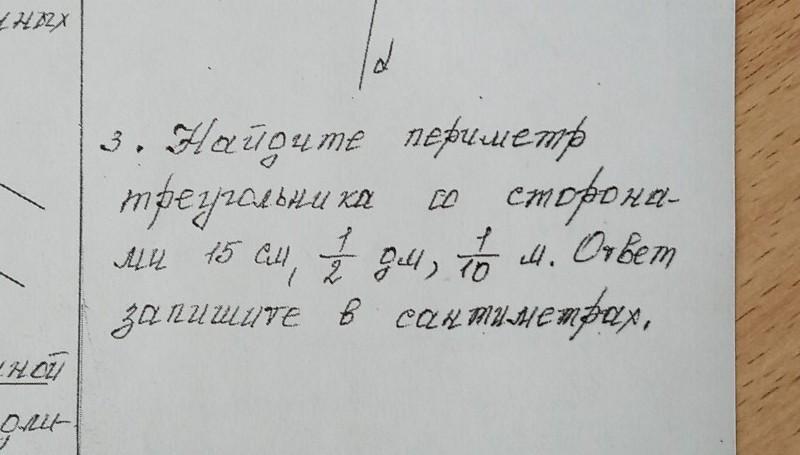 нных
d
3. Найдите периметр
треугольника со сторона-
ми 15 см, 1/2 дм, 1/10 м. Ответ
запишите в сантиметрах.
ной
дли-